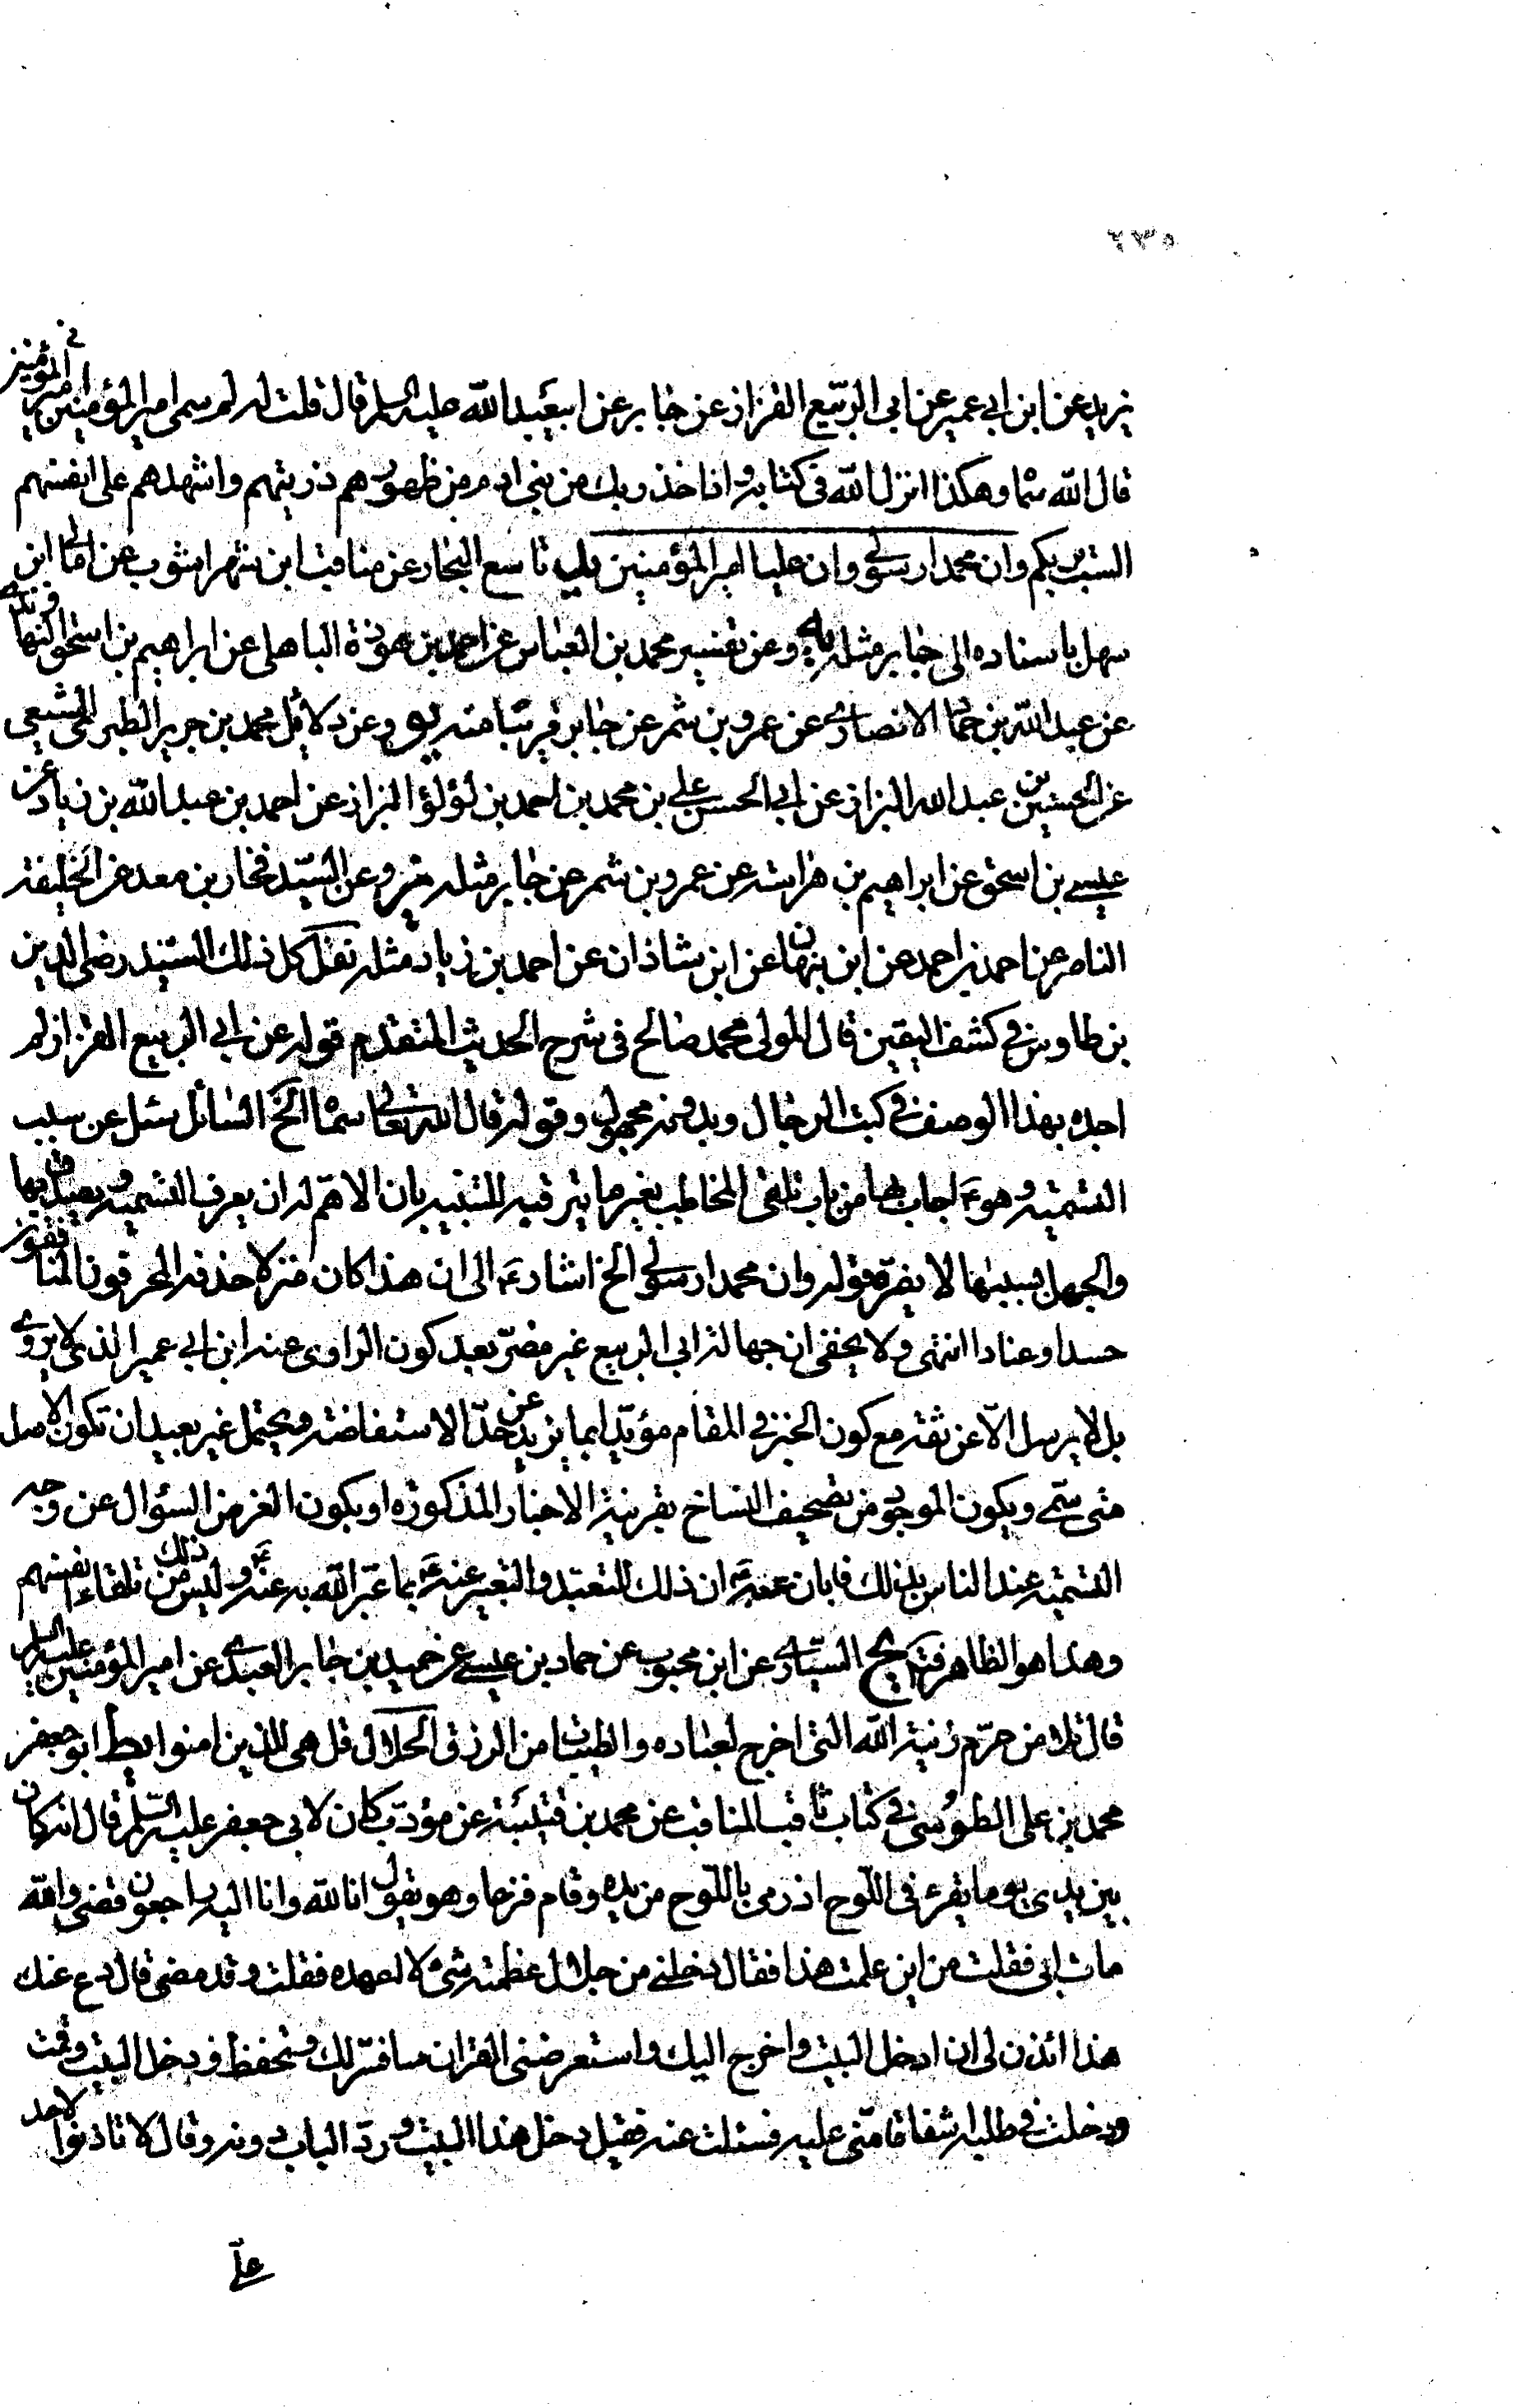 ٢٣٥
يزيد عن ابن ابي عمير عن ابي الربيع القزاز عن جابر عن ابيعبد الله عليه السلم قال قلت له لم سمى امير المؤمنين امير المؤمنين في
قال الله سماه وهكذا انزل الله في كتابه واذ اخذ ربك من بني ادم من ظهورهم ذريتهم واشهدهم على انفسهم
الست بربكم وان محمدا رسولي وان عليا امير المؤمنين تاسع البحار عن مناقب ابن شهراشوب عن امالي ابن
سهل باسناده الى جابر مثله وعن تفسير محمد بن العباس عن احمد بن هوذة الباهلي عن ابراهيم بن اسحق النهاوندي
عن عبد الله بن حماد الانصاري عن عمرو بن شمر عن جابر قريبا منه وعن دلائل محمد بن جرير الطبري الشيعي
عن الحسين بن عبد الله البزاز عن ابي الحسن علي بن محمد بن احمد بن لؤلؤ البزاز عن احمد بن عبد الله بن زياد عن
عيسى بن اسحق عن ابراهيم بن هراسة عن عمرو بن شمر عن جابر مثله وعن السيد فخار بن معد عن الخليفة
الناصر عن احمد بن احمد عن ابن نبهان عن ابن شاذان عن احمد بن زياد مثله نقل كل ذلك السيد رضي الدين
بن طاوس في كشف اليقين قال المولى محمد صالح في شرح الحديث المتقدم قوله عن ابي الربيع القزاز لم
اجده بهذا الوصف في كتب الرجال وبدونه مجهول وقوله قال الله تعالى سماه الخ السائل سئل عن سبب
التسمية وهو ع اجاب بها من باب تلقي المخاطب بغير ما يترقبه للتنبيه بان الاهم له ان يعرف التسمية ويصدق بها
والجهل بسببها لا يضره قوله وان محمدا رسولي الخ اشار ع الى ان هذا كان منزلا حذفه المحرفون المنافقون
حسدا وعنادا انتهى ولا يخفى ان جهالة ابي الربيع غير مضر بعد كون الراوي عنه ابن ابي عمير الذي لا يروي
بل لا يرسل الا عن ثقة مع كون الخبر في المقام مؤيدا بما يزيد عن حد الاستفاضة ويحتمل غير بعيد ان تكون الاصل
متى سمي ويكون الموجود من تصحيف النساخ بقرينة الاخبار المذكورة او يكون الغرض السؤال عن وجه
التسمية عند الناس بذلك فابان ع ان ذلك للتعبد والتعبير عنه ع بما عبر الله به عنه ع وليس ذلك من تلقاء انفسهم
وهذا هو الظاهر السياري عن ابن محبوب عن حماد بن عيسى عن حميد بن جابر العبدي عن امير المؤمنين عليه السلم
قال تلا من حرم زينة الله التي اخرج لعباده والطيبات من الرزق الحلال قل هي للذين امنوا ابو جعفر
محمد بن علي الطوسي في كتاب ثاقب المناقب عن محمد بن قتيبة عن مؤدب كان لابي جعفر عليه السلم قال انه كان
بين يدي يوما يقرء في اللوح اذ رمى باللوح من يده وقام فزعا وهو يقول انا لله وانا اليه راجعون قضى والله
مات ابي فقلت من اين علمت هذا فقال دخلني من جلال عظمته شئ لا اعهده فقلت وقد مضى قال دع عنك
هذا ائذن لي ان ادخل البيت واخرج اليك واستعرضني القران سافسر لك وتحفظ ودخل البيت وقمت
ودخلت في طلبه اشفاقا مني عليه فسئلت عنه فقيل دخل هذا البيت ورد الباب دونه وقال لا تاذنوا لاحد
علي